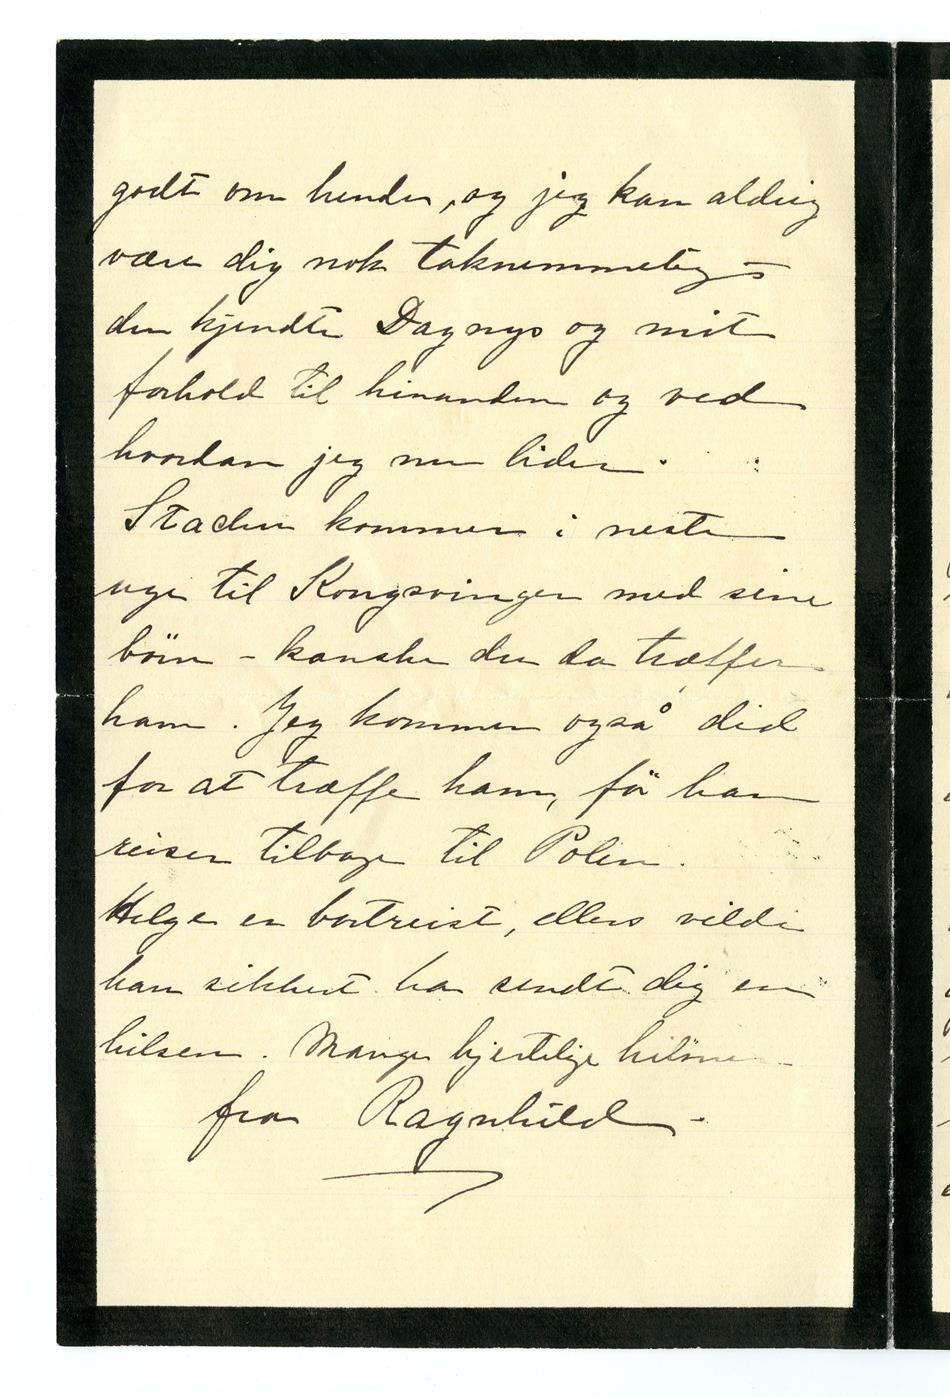 godt om hende, og jeg kan aldrig
være dig nok taknemmelig –
du kjendte Dagnys og mit
forhold til hinanden og ved
hvordan jeg nu lider.
Stachu kommer i neste
uge til Kongsvinger med sine
börn – kanske du da træffer
ham. Jeg kommer også did
for at træffe ham, för han
reiser tilbage til Polen.
Helge er bortreist, ellers vilde
han sikkert ha sendt dig en
hilsen. Mange hjertelige hilsner
fra Ragnhild –